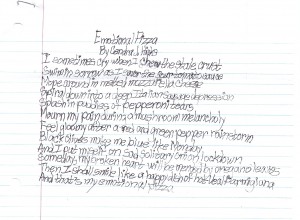 Emotional Pizza
By Geraldine J. Hayes
I sometimes cry when I chew the stale crust
Swim in sorrow as I savor the sour tomato sauce
Mope around in melted mozzarella cheese
Spiral down into a deep Italian sausage depression
Splash in puddles of pepperoni tears
Mourn my pain during a mushroom melancholy
Feel gloomy after a red and green pepper rainstorm
Black olives make me blue like Monday
And I put myself on sad solitary onion lockdown
Someday, my broken heart will be mended by oregano leaves
Then I shall smile like a happy bit of hot leaf Parmigiana
And that's my emotional pizza